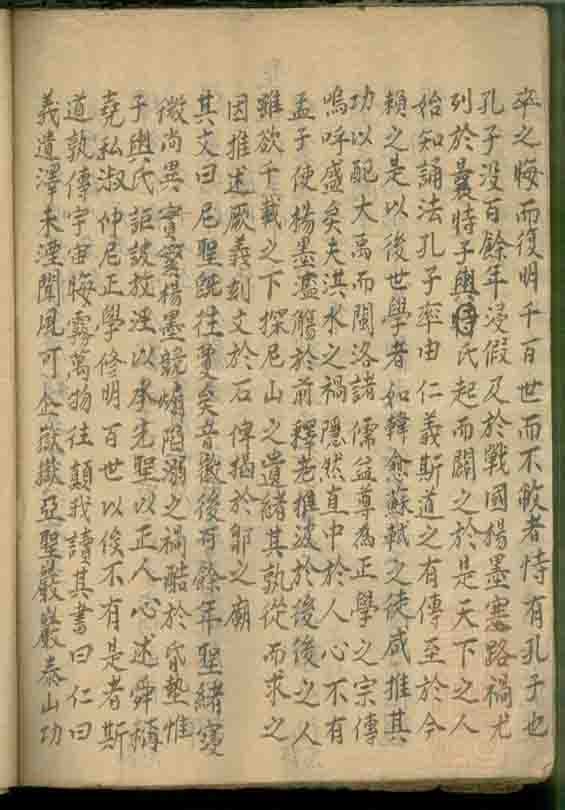 卒之晦而復明千百世而不敝者恃有孔子也
孔子没百餘年浸假及於戰國楊墨塞路禍尤
列於曩時子輿氏起而闢之於是天下之人
始知誦法孔子率由仁義斯道之有傳至於今
賴之是以後世學者如韓愈蘇軾之徒咸推其
功以配大禹而閩洛諸儒益尊為正學之宗傳
嗚呼盛矣夫洪水之禍隱然直中於人心不有
孟子使楊墨濫觴於前釋老推波於後後之人
雖欲千載之下探尼山之遺緒其孰從而求之
因推述厥義刻文於石俾揭於鄒之廟
其文曰尼聖既往敻矣音徽後百餘年聖緒寖
微尚異實繁楊墨競熾陷溺之禍酷於昏墊惟
子輿氏詎詖放淫以承先聖以正人心述舜稱
堯私淑仲尼正學修明百世以俟不有是者斯
道孰傳宇宙晦霧萬物狂顛我讀其書曰仁曰
義遺澤未湮聞風可企嶽嶽亞聖巖巖泰山功